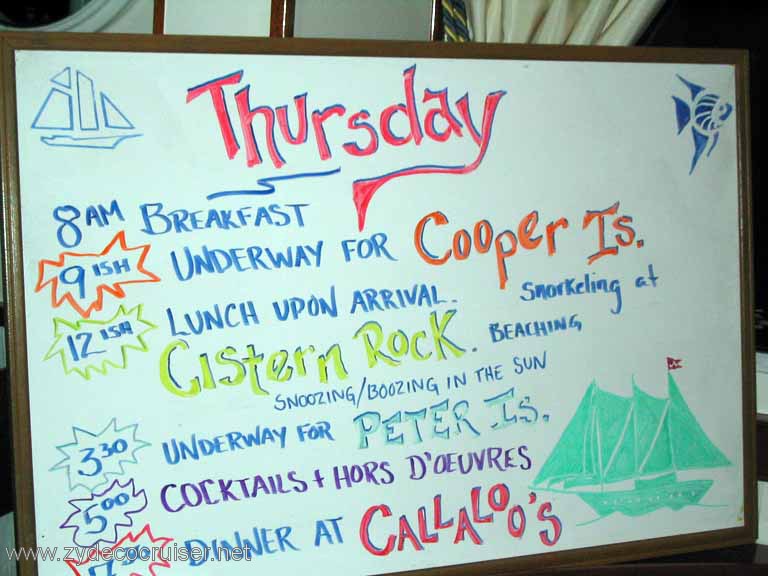 Thursday
8AM BREAKFAST
9ISH UNDERWAY FOR Cooper Is.
12ISH LUNCH UPON ARRIVAL. Snorkeling at
CISTERN ROCK. BEACHING
SNOOZING/BOOZING IN THE SUN
3:30 UNDERWAY FOR PETER IS.
5:00 COCKTAILS + HORS D'OEUVRES
DINNER AT CALLALOO'S
www.zydecocruiser.net